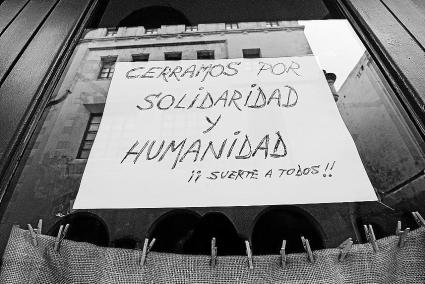 CERRAMOS POR
SOLIDARIDAD
y
HUMANIDAD
¡¡ SUERTE A TODOS !!